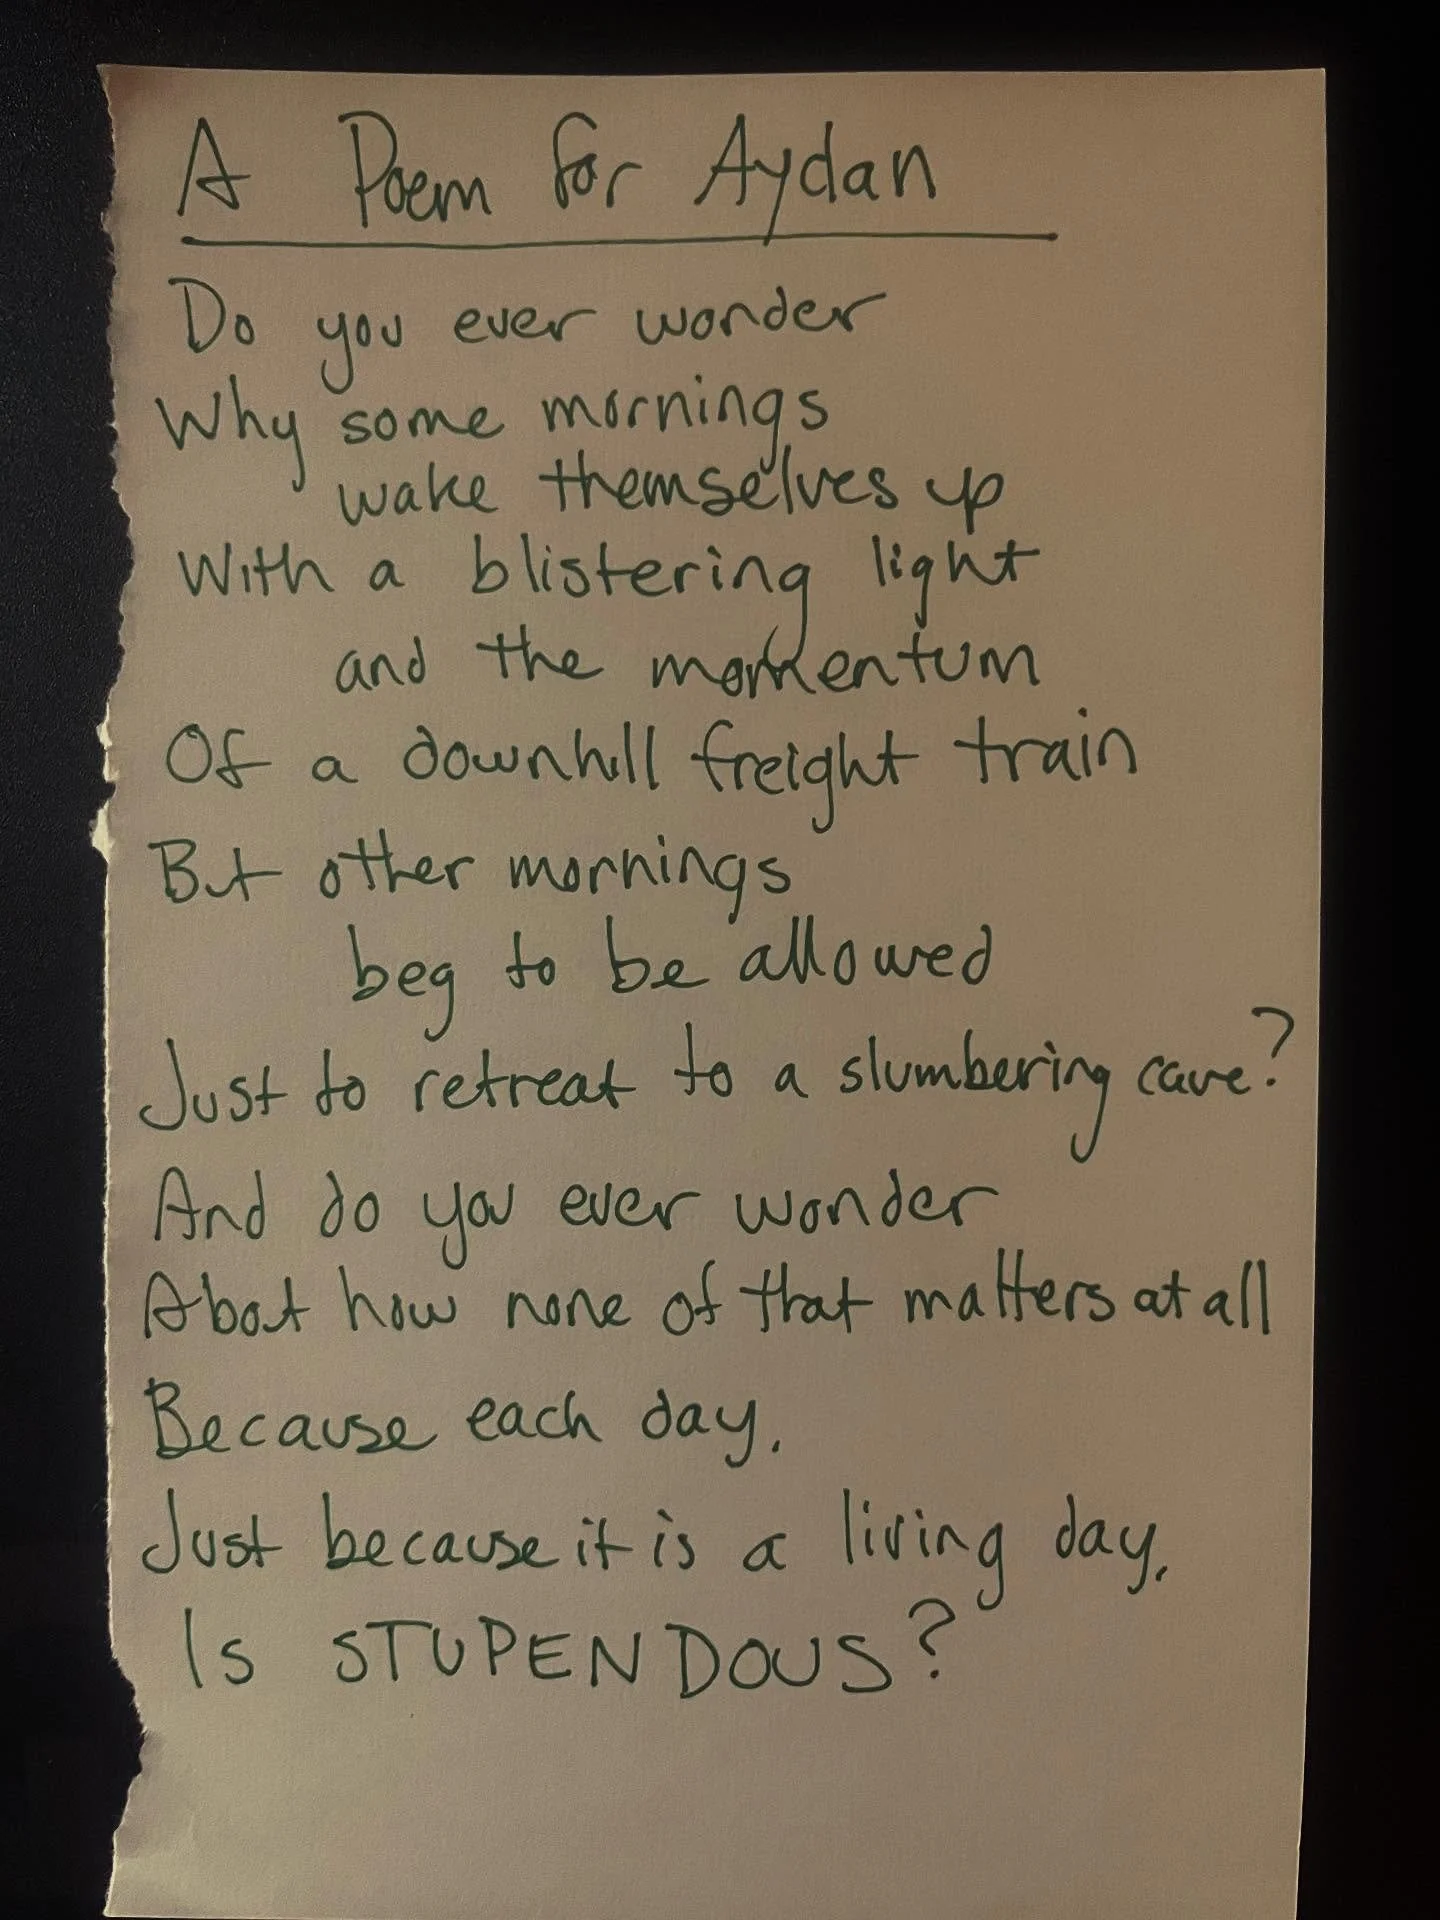 A Poem for Aydan
Do you ever wonder
Why some mornings
wake themselves up
With a blistering light
and the momentum
Of a downhill freight train
But other mornings
beg to be allowed
Just to retreat to a slumbering cave?
And do you ever wonder
About how none of that matters at all
Because each day,
Just because it is a living day,
Is STUPENDOUS?